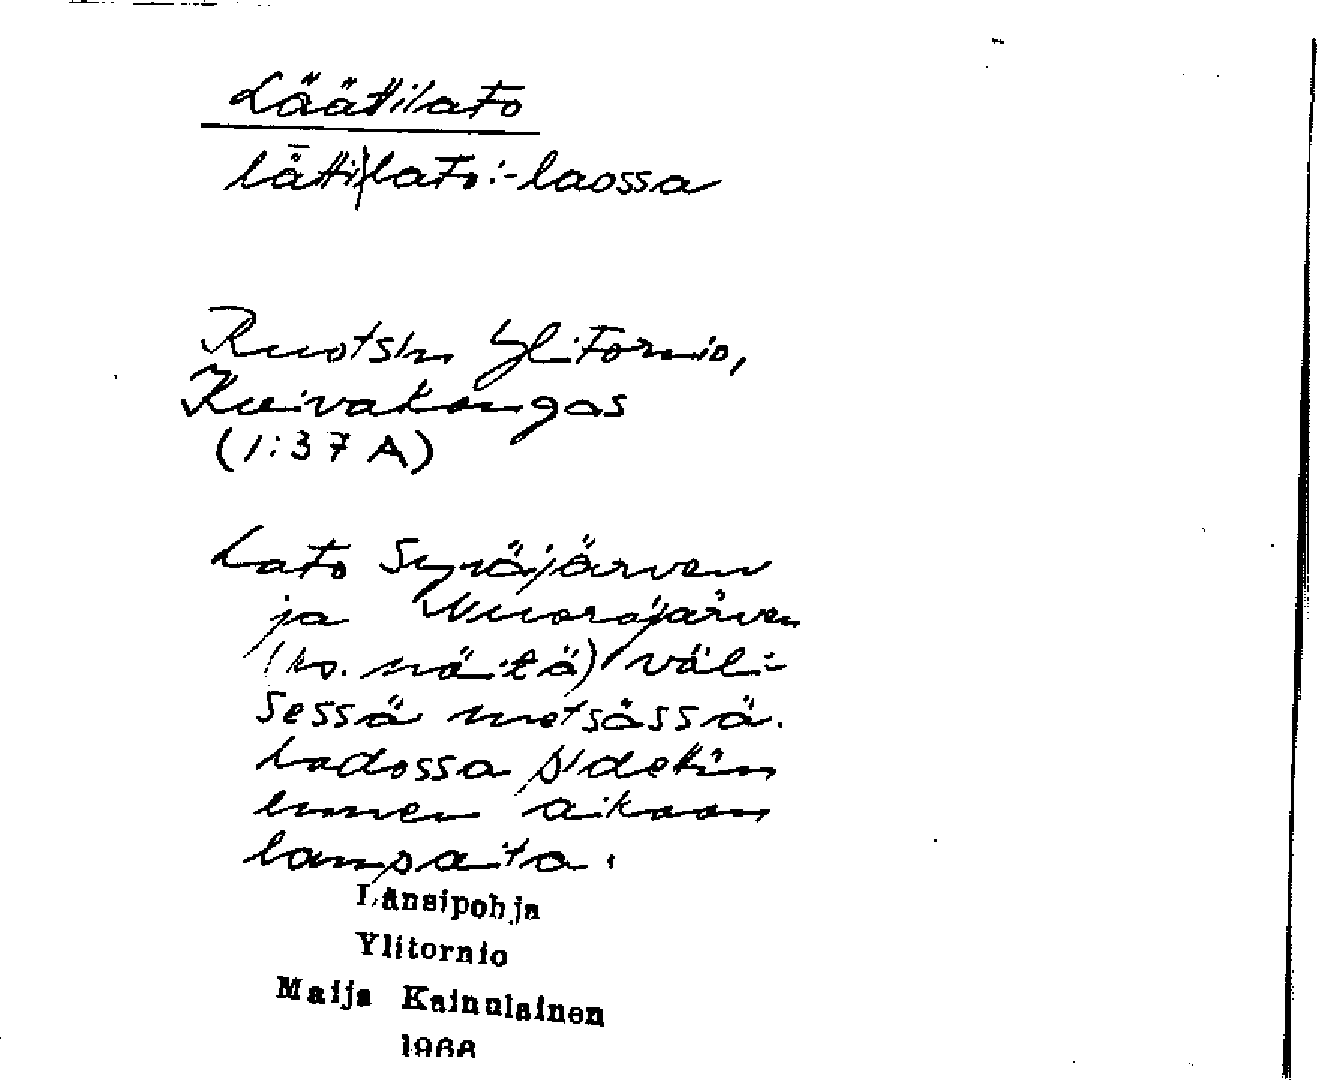 Läätilato
lǟtti|lato: -laossa
Ruotsin Ylitornio,
Kuivakangas
(1:37 A)
Lato Syväjärven
ja Nuorajärven
(ks. näitä) väli-
sessä metsässä.
Ladossa pidettiin
ennen aikaan
lampaita.
Länsipohja
Ylitornio
Maija Kainulainen
1966